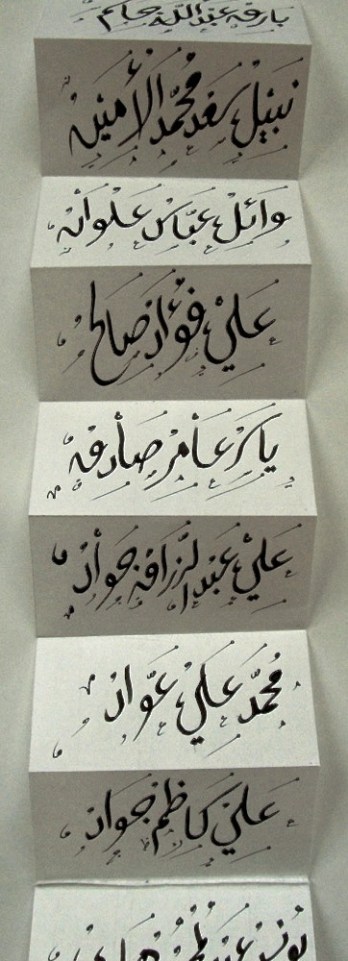 عبدالله جاسم
نبيل سعد محمد الأمين
وائل عباس علوان
علي فؤاد صالح
ياسر عامر صادق
علي عبد الرزاق جواد
محمد علي عواد
علي كاظم جواد
يونس عبد